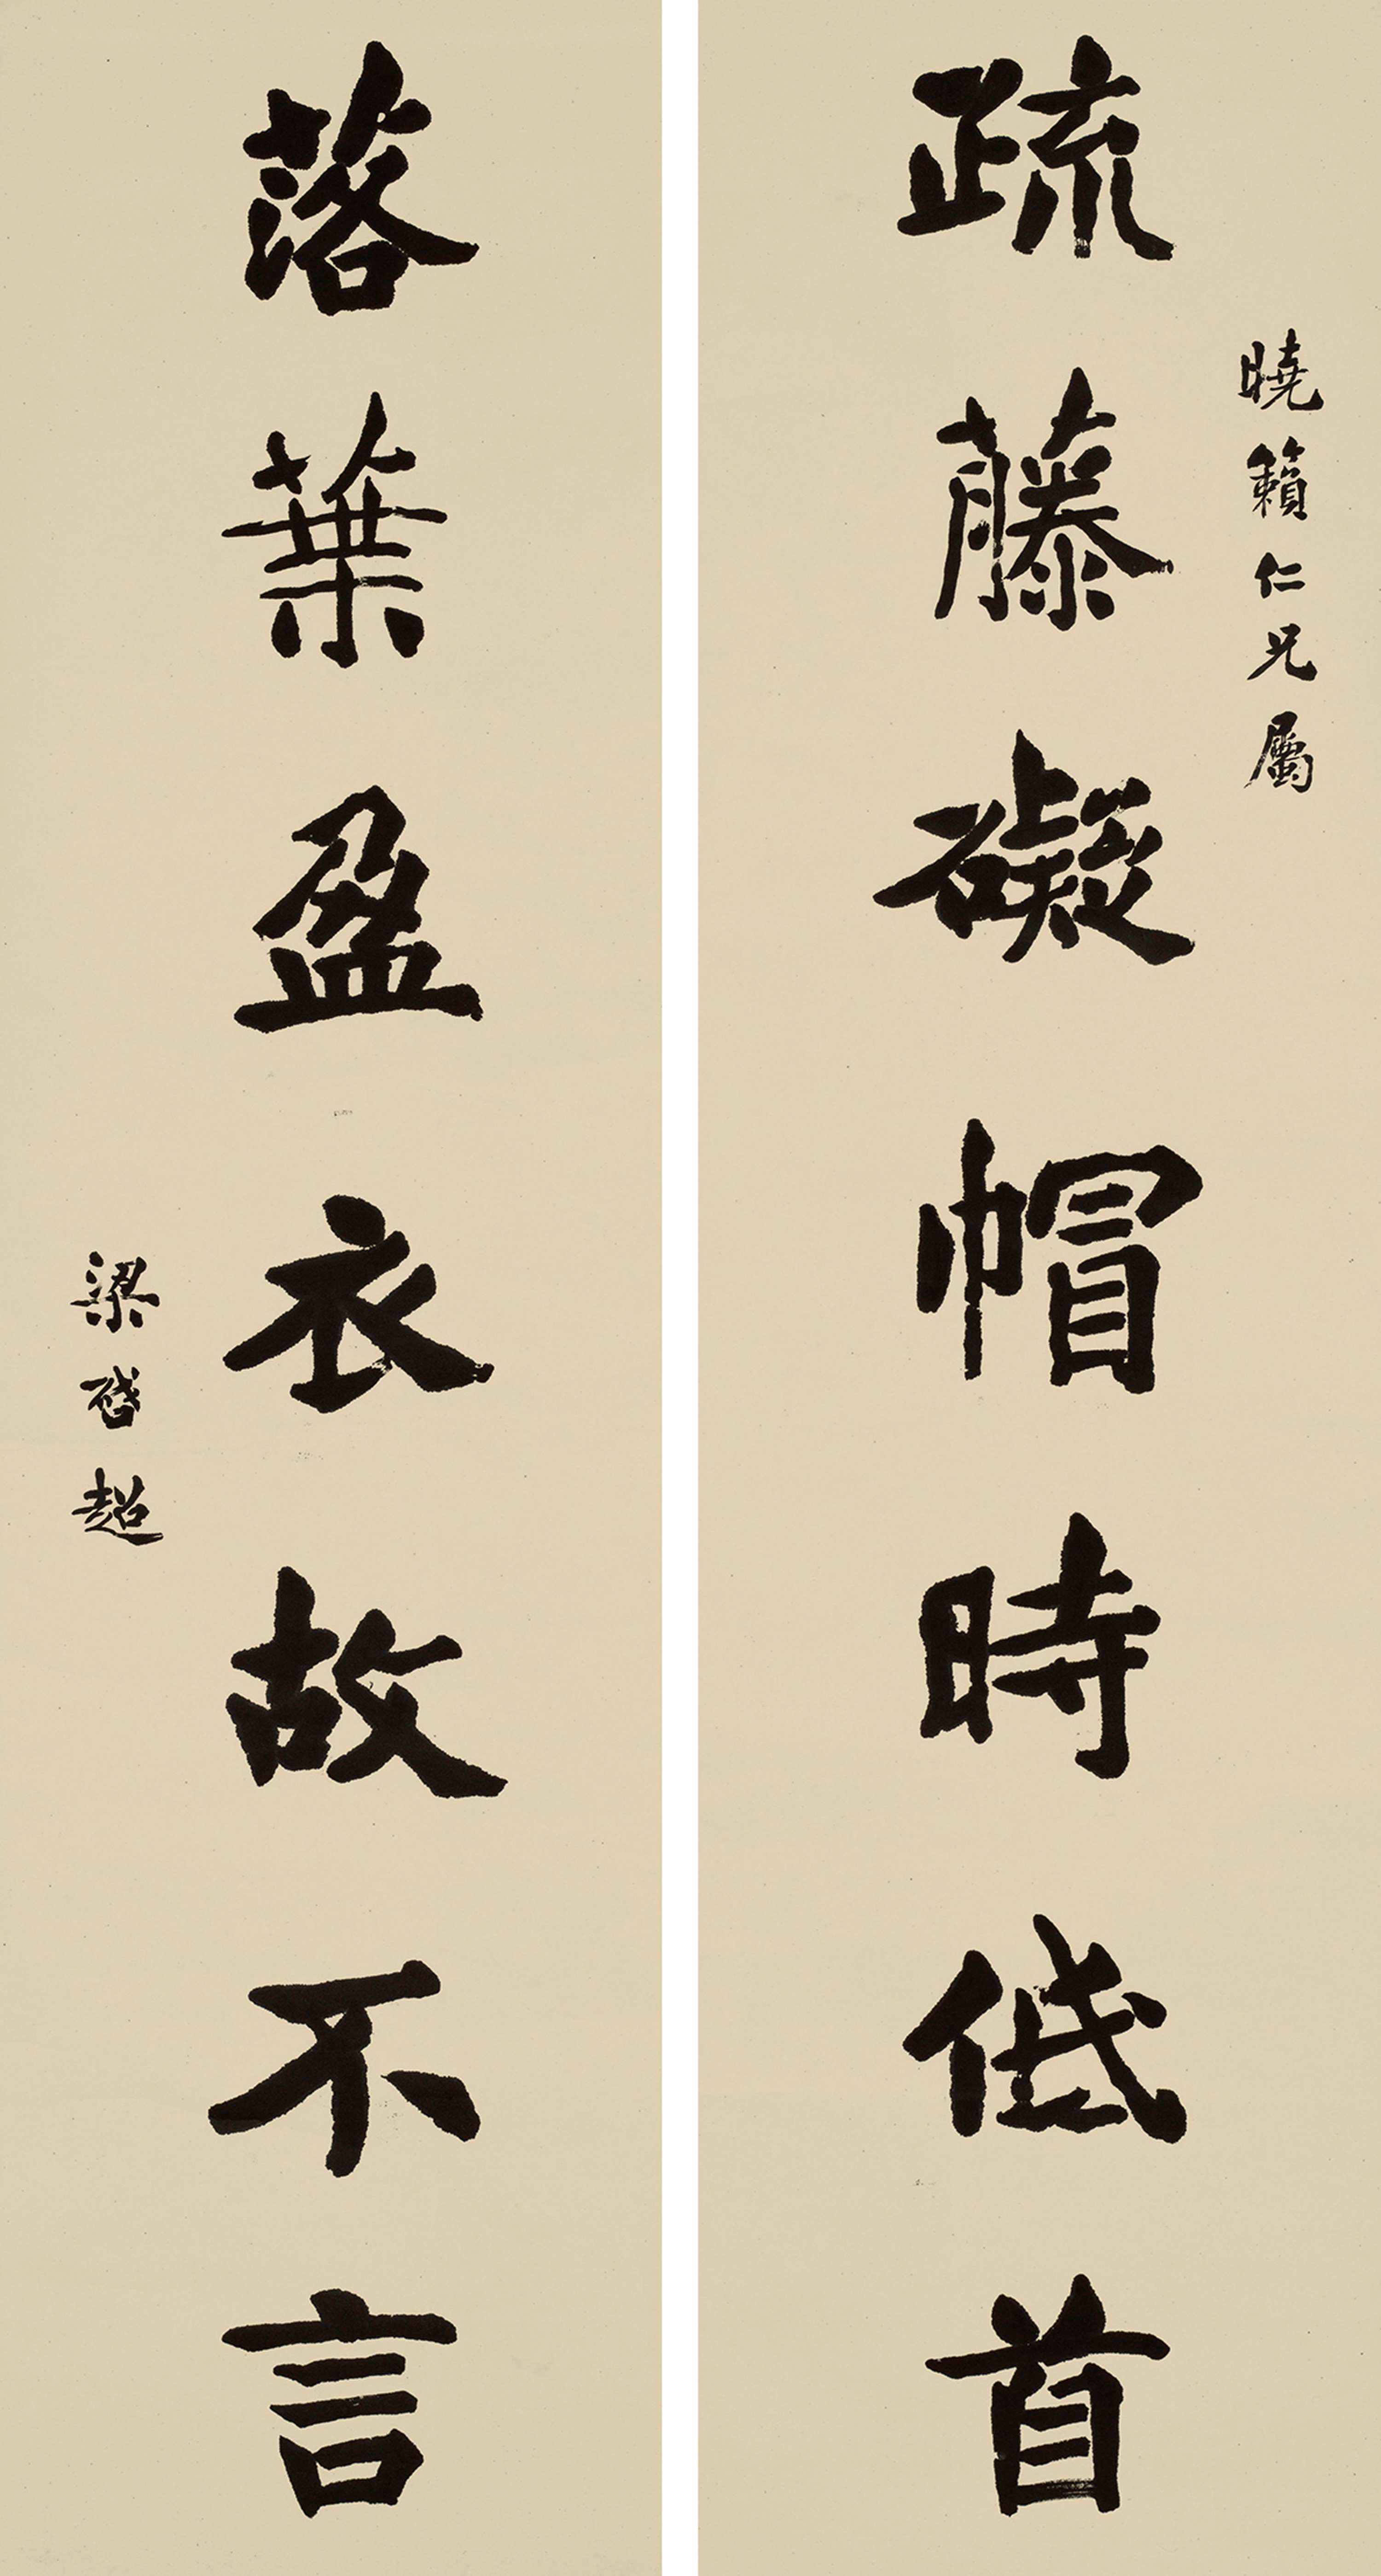 曉籟仁兄屬
疏藤礙帽時低首
落葉盈衣故不言
梁啓超